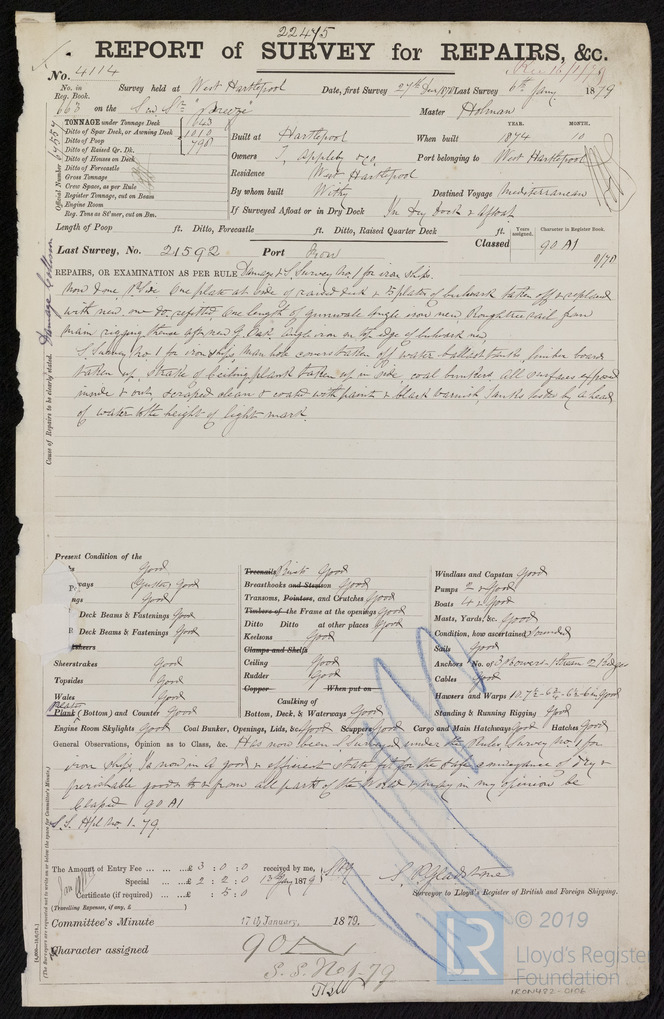 22475
REPORT of SURVEY for REPAIRS, &c.
No. 4114
Rec 16/1/79
No. in Reg. Book. Survey held at West Hartlepool Date, first Survey 27th Decr 1878 Last Survey 6th Jany 1879
663 on the Sw Sr "Breeze" Master Holman
TONNAGE under Tonnage Deck 643
Ditto of Spar Deck, or Awning Deck 1010
Ditto of Poop 798
Ditto of Raised Qr. Dk.
Ditto of Houses on Deck
Ditto of Forecastle
Gross Tonnage
Crew Space, as per Rule
Register Tonnage, cut on Beam
Engine Room
Reg. Tons as St'mer, cut on Bm.
Official Number
YEAR. MONTH.
Built at Hartlepool When built 1874 10
Owners T. Appleby &Co. Port belonging to West Hartlepool
Residence West Hartlepool
By whom built Withy Destined Voyage Mediterranean
If Surveyed Afloat or in Dry Dock In Dry Dock & afloat
Length of Poop ft. Ditto, Forecastle ft. Ditto, Raised Quarter Deck ft.
Years assigned. Character in Register Book.
Classed 90 A1
Last Survey, No. 21592 Port Iron
Cause of Repairs to be clearly stated. Damage Collision
REPAIRS, OR EXAMINATION AS PER RULE Damage & S. Survey No. 1 for iron ship.
Now done, One plate at side of raised deck & plates of bulwark taken off & replaced
with new, one do. refitted, one length of gunwale angle iron new, Roughtree rail from
main rigging thence aft new, angle iron on top edge of bulwark new
S. Survey No. 1 for iron ships, Man hole covers taken off water ballast tanks, limber boards
taken up, Strake of ceiling plank taken up in side, coal bunkers, all surfaces exposed
inside & out, scraped clean & coated with paint & black varnish. Tanks tested by a head
of water to the height of light mark.
Present Condition of the
Good
ways Gutters Good
ngs Good
Deck Beams & Fastenings Good
Deck Beams & Fastenings Good
Sheerstrakes Good
Topsides Good
Wales Good
Plank (Bottom) and Counter Good
Treenails Rivets Good
Breasthooks and Stemson Good
Transoms, Pointers, and Crutches Good
Timbers of the Frame at the openings Good
Ditto Ditto at other places Good
Keelsons Good
Clamps and Shelfs
Ceiling Good
Rudder Good
Copper When put on
Caulking of
Bottom, Deck, & Waterways Good
Windlass and Capstan Good
Pumps 2 Good
Boats 4 Good
Masts, Yards, &c. Good
Condition, how ascertained Sounded
Sails Good
Anchors No. of 3 Bowers 1 Stream 2 Kedges
Cables Good
Hawsers and Warps Good
Standing & Running Rigging Good
Engine Room Skylights Good Coal Bunker, Openings, Lids, &c. Good Scuppers Good Cargo and Main Hatchways Good Hatches Good
General Observations, Opinion as to Class, &c. Has now been S. Surveyed under the Rules, Survey No. 1 for
iron ships, is now in a good & efficient state, fit for the safe conveyance of dry &
perishable goods to & from all parts of the World & may in my opinion be
Classed 90 A1
S.S. Hpl No. 1-79.
The Amount of Entry Fee ... ... £ 3 : 0 : 0 received by me,
Special ... ... £ 2 : 2 : 0 13th Jany 1879
Certificate (if required) ... £ : 5 : 0
(Travelling Expenses, if any, £ )
S. P. Gladstone
Surveyor to Lloyd's Register of British and Foreign Shipping.
Committee's Minute 17th January, 1879.
Character assigned 90 A1
S.S. No 1-79
© 2019
LR
Lloyd's Register
Foundation
IRON482-0106